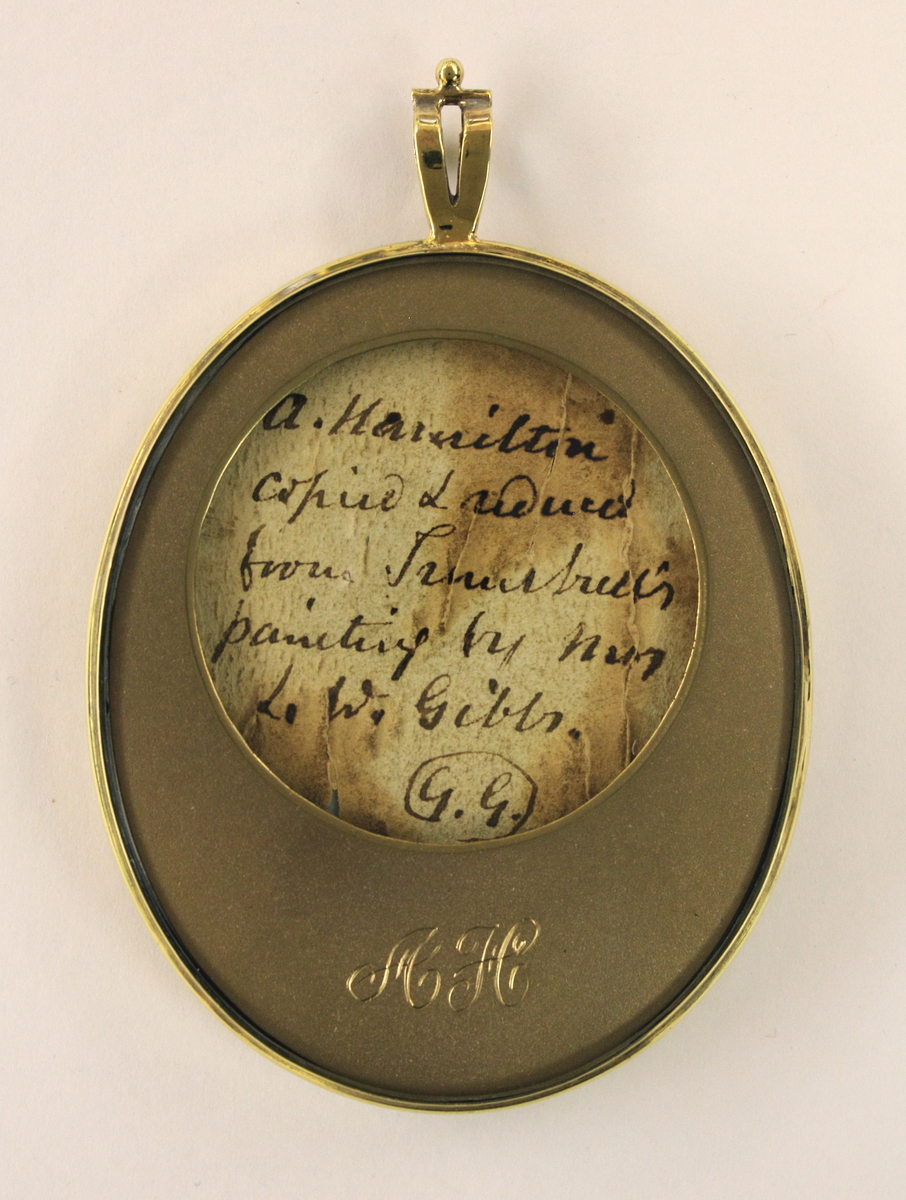 A. Hamilton
copied & reduced
from Trumbull's
painting by Mrs
L. W. Gibbs.
G.G.
AH